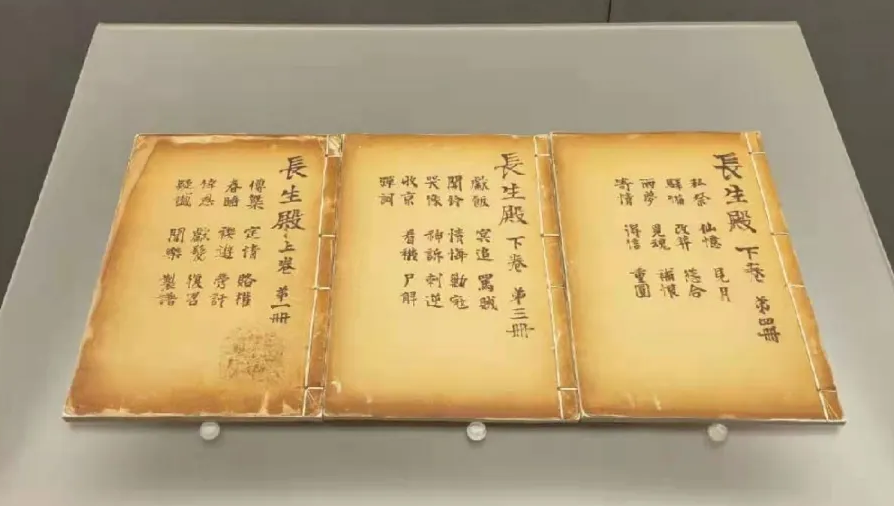 長生殿 上卷 第一冊
傳槩 定情 賄權
春睡 禊遊 旁訝
倖恩 獻髮 復召
疑讖 聞樂 製譜
長生殿 下卷 第三冊
獻飯 冥追 罵賊
聞鈴 情悔 勦寇
哭像 神訴 刺逆
收京 看襪 尸解
彈詞
長生殿 下卷 第四冊
私祭 仙憶 見月
驛備 改葬 慫合
雨夢 覓魂 補恨
寄情 得信 重圓